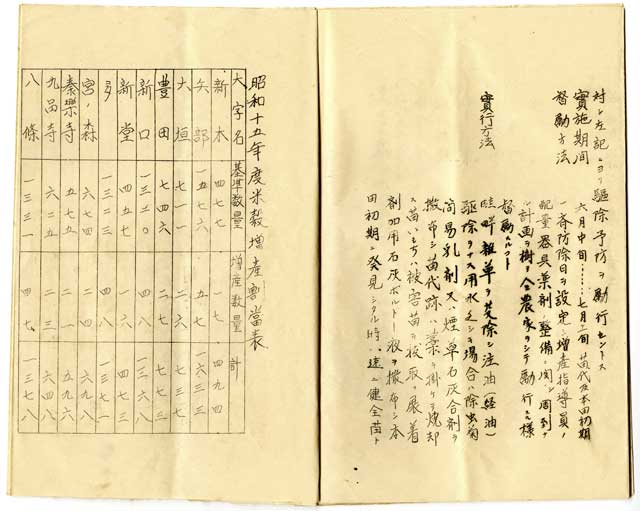 対シ左記ニヨリ駆除予防ヲ励行セントス
實施期間 六月中旬……七月上旬 苗代及本田初期
督励方法 一斉防除日ヲ設定シ増産指導員ノ
配置器具薬剤ノ整備ニ関シ周到ナ
ル計画ヲ樹テ全農家ヲシテ励行スル様
督励スルコト
實行方法 畦畔雑草ヲ芟除シ注油(軽油)
駆除ヲナス用水乏シキ場合ハ除虫菊
簡易乳剤又ハ煙草石灰合剤ヲ
撒布シ苗代跡ハ藁ヲ掛ケテ焼却
ス苗いもちハ被害苗ヲ抜取展着
剤加用石灰ボルドー液ヲ撒布シ本
田初期ニ発見シタル時ハ速ニ健全苗ト
昭和十五年度米穀増産割當表
大字名 基準数量 増産数量 計
新木 四八七 七 四九四
矢部 一五七六 五七 一六三三
大垣 七一一 二六 七三七
豊田 七四六 二七 七七三
新口 一三二〇 四八 一三六八
新堂 四五七 一六 四七三
多 一三二三 四八 一三七一
宮ノ森 六七四 二四 六九八
秦樂寺 五七五 二一 五九六
九品寺 六二五 二三 六四八
八條 一三三一 四七 一三七八